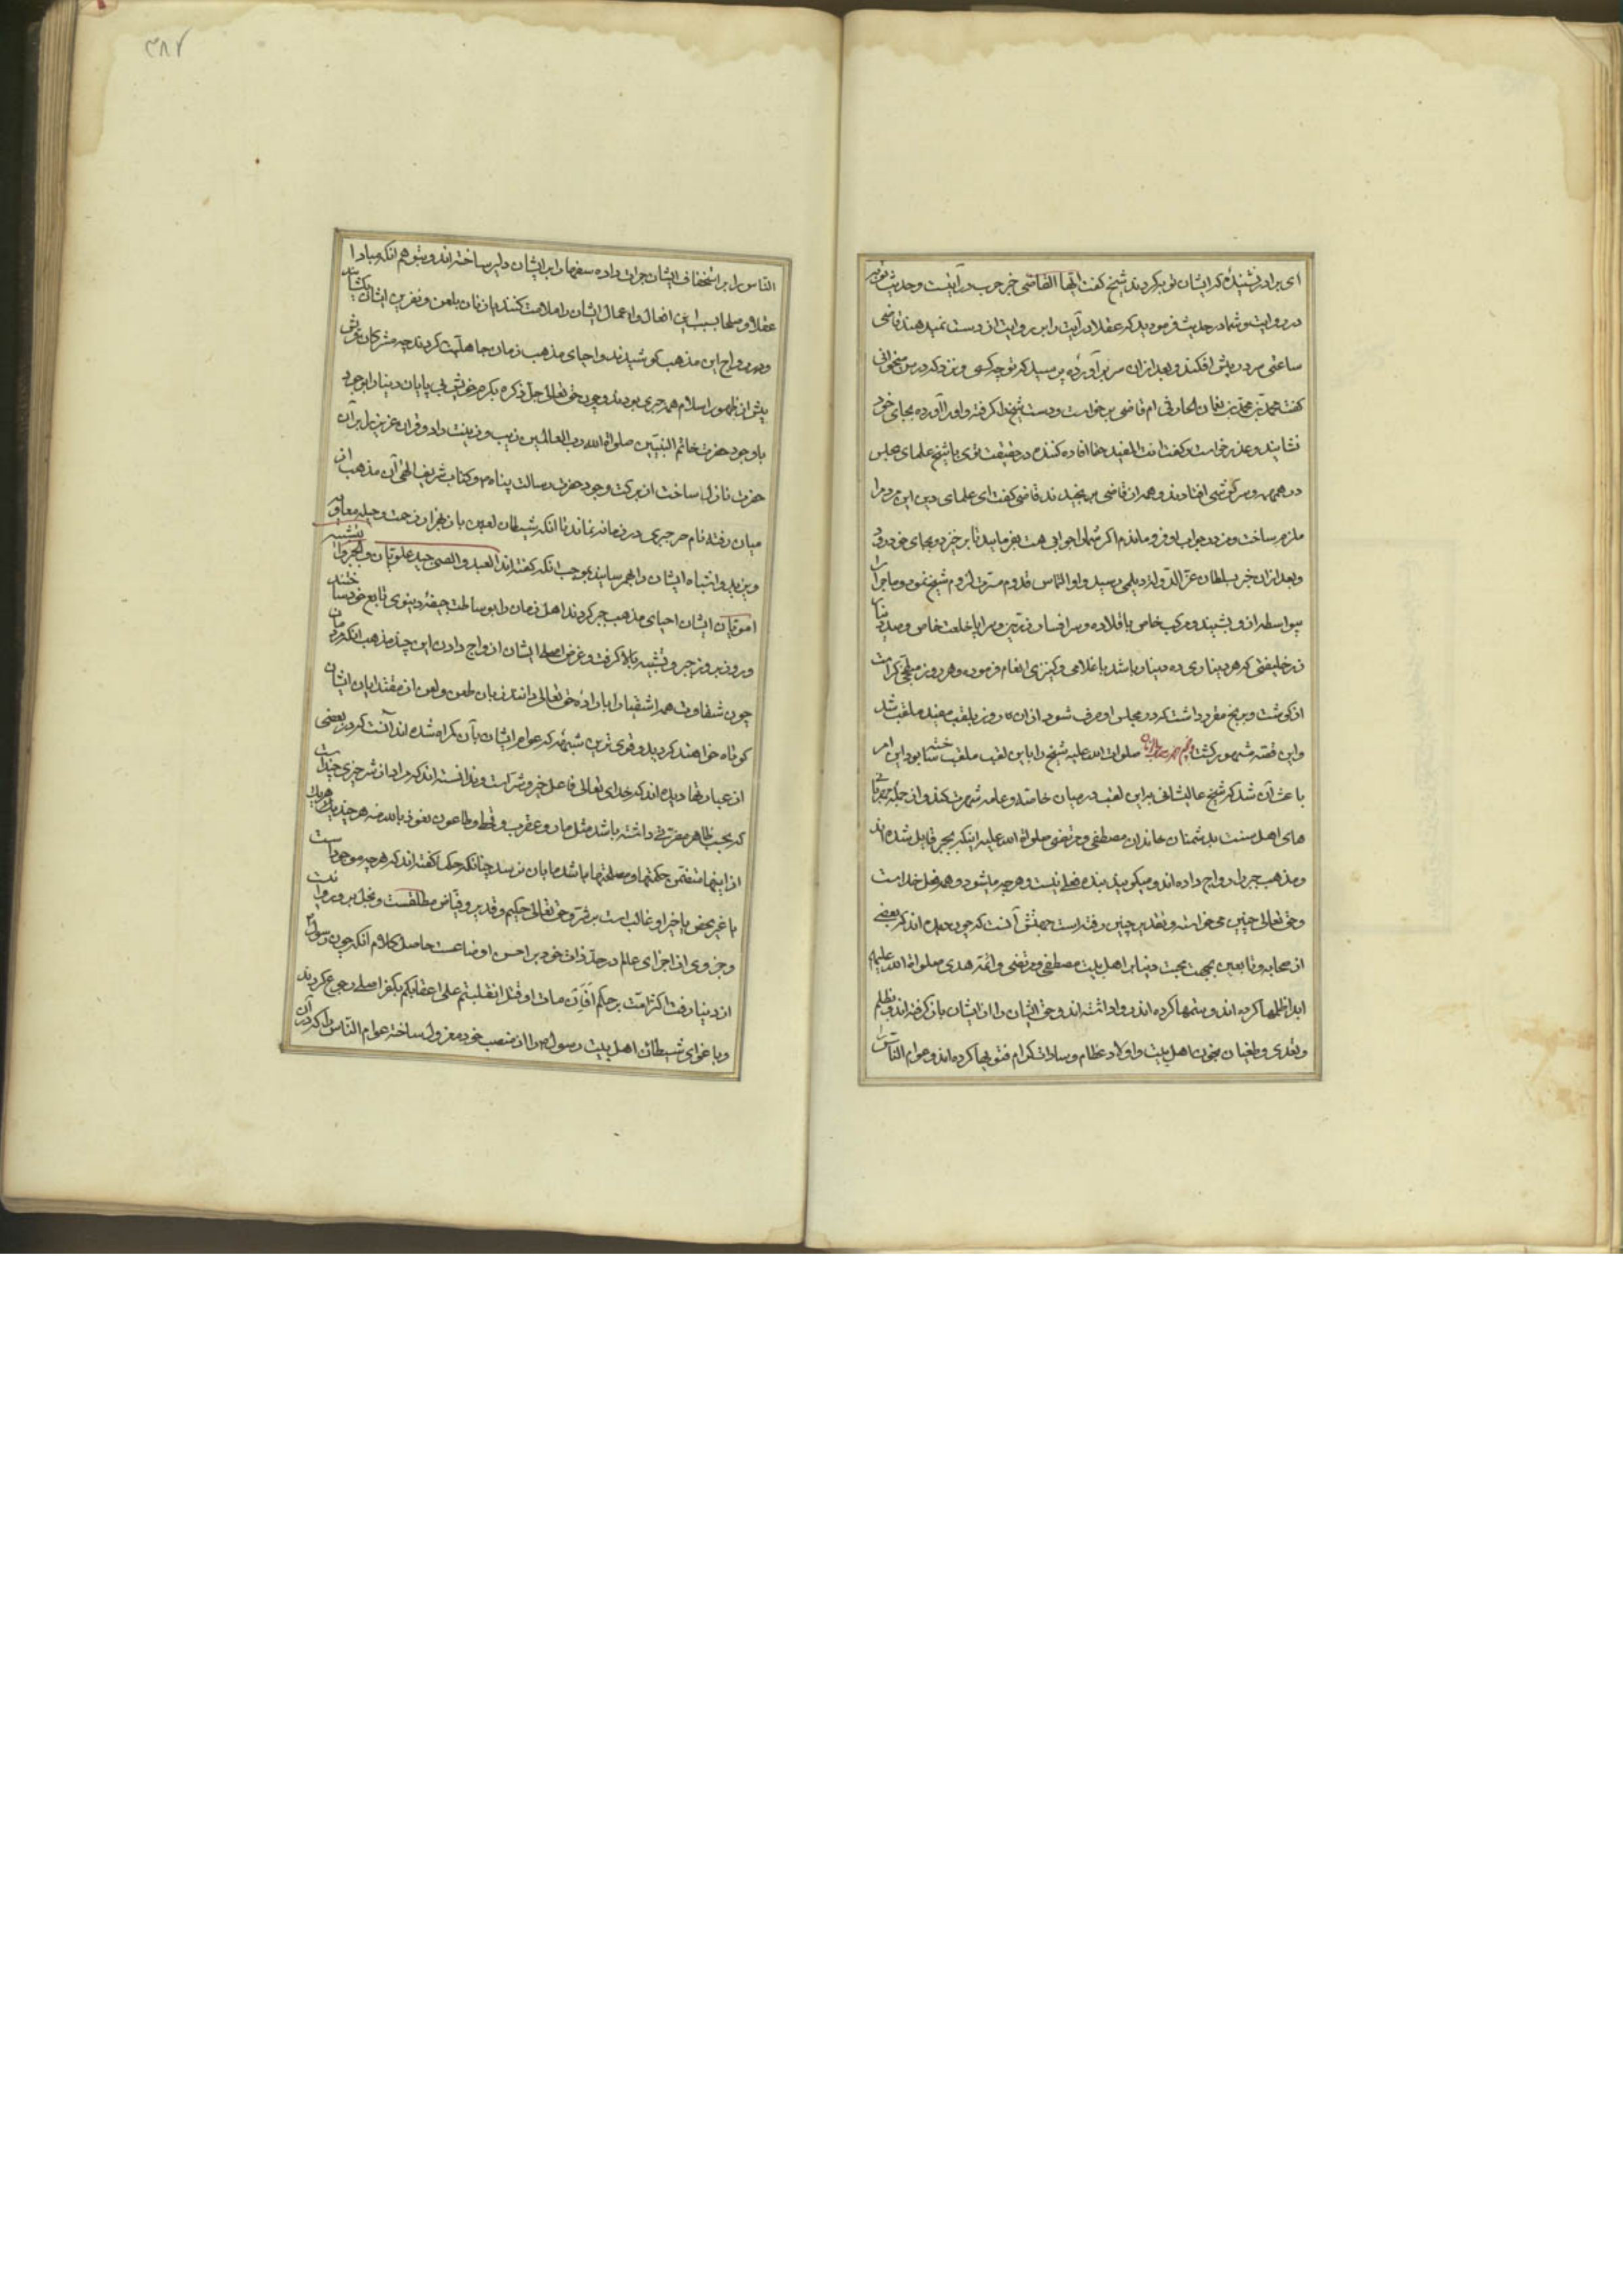 ای برادر نشنیدهٔ که ایشان توبه کردند شیخ گفت ایها القاضی خبر حرب درایتست و حدیث توبه
در روایت و شما در حدیث فرمودید که عقلا درآیت را بر روایت از دست نمیدهند قاضی
ساعتی سر در پیش افکند و بعد از آن سر برآورده پرسید که تو چه کسی و نزد که درس میخوانی
گفت محمد بن محمد بن نعمان الحارثی ام قاضی برخواست و دست شیخ را گرفته و او را آورده بجای خود
نشانید و عذر خواست و گفت انت المفید حقا افاده کننده در حقیقت توی یا شیخ علمای مجلس
در همهمه و سرگوشی افتادند و همه از قاضی برنجیدند قاضی گفت ای علمای دین این مرد مرا
ملزم ساخت و من در جواب او فرو ماندم اگر شما را جوابی هست بفرمایید تا برخیزد و بجای خود رود
و بعد از آن خبر بسلطان عز الدوله دیلمی رسید و او التماس قدوم مسرت لزوم شیخ نمود و ماجرا را
بیواسطه از و بشنید و مرکب خاص با قلاده و سر افسار زرین و سراپا خلعت خاص و صد دینار
زر خلیفتی که هر دیناری ده دینار باشد با غلامی و کنیزی انعام فرموده و هر روز مبلغی کرامت
از گوشت و برنج مقرر داشت که در مجلس او صرف شود از آن روز بلقب مفید ملقب شد
و این قصه مشهور گشت صلوات الله علیه شیخ را باین لقب ملقب ساخته بود این امر
باعث آن شد که شیخ عالیشانی براین لقب در میان خاصه و عامه شهرت کند و از جمله
های اهل سنت بدشمنان خاندان مصطفی و مرتضی صلواة الله علیه اینکه بجبر قایل شده اند
و مذهب جبر را رواج داده اند و میگویند بنده فعلی نیست و هرچه میشود همه فعل خداست
و حق تعالی چنین می خواسته و تقدیر چنین رفته است جهتش آنست که چون دیده اند که بعضی
از صحابه و تابعین بجهت محبت دنیا بر اهل بیت مصطفی و مرتضی و ائمه هدی صلواة الله علیهم
ابدا ظلمها کرده اند و ستمها کرده اند و روا داشته اند و حق ایشان را از ایشان باز گرفته اند و بظلم
و تعدی و طغیان بخون اهل بیت و اولاد عظام و سادات کرام فتویها کرده اند و عوام الناس
الناس را بر استخفاف ایشان جرات داده سفها را بر ایشان دلیر ساخته اند و بتوهم آنکه مبادا
عقلا و صلحا بسبب این افعال و اعمال ایشان را ملامت کنند یا زبان بلعن و نفرین ایشان بگشایند
و در رواج این مذهب کوشیدند و احیای مذهب زمان جاهلیت کردند چه مشرکان قریش
پیش از ظهور اسلام همه جبری بودند و چون حق تعالی جل ذکره بکرم خویش بی پایان دنیا را بوجود
باوجود حضرت خاتم النبیین صلواة الله رب العالمین زیب و زینت داد و قران عزیز را بر آن
حضرت نازل ساخت از برکت وجود حضرت رسالت پناه و کتاب شریف الهی آن مذهب از
میان رفته نام جبر و جبری در زمانه نماند تا آنکه شیطان لعین باز هزاران زحمت و حیله معاویه
و یزید و اشباه ایشان را بهم رسانید بموجب آنکه گفته اند العبد و الصبی جید علویان و الجبر و التشبیه
امویان ایشان احیای مذهب جبر کردند و اهل زمان را بوساطت جیفهٔ دنیوی تابع خود ساختند
و روز بروز جبر و تشبیه بالا گرفت و غرض اصلی ایشان از رواج دادن این چند مذهب آنکه مردمان
چون شقاوت همه اشقیا را باراده حق تعالی دانند زبان طعن و لعن از مقتدایان ایشان
کوتاه خواهند کردید و قوی ترین شبهه که عوام ایشان بآن گمراه شده اند آنست که در بعضی
از عبارتها دیده اند که خدای تعالی فاعل خیر و شر است و ندانسته اند که مراد از شر چیزی چند است
که بحسب ظاهر مضرتی داشته باشد مثل مار و عقرب و قحط و طاعون نعوذ بالله منه هر چند هر یک
از اینها متضمن حکمتها و مصلحتها باشد ما بآن نرسیم چنانکه حکما گفته اند که هرچه موجود است
یا خیر محض یا خیر او غالب است بر شر و حق تعالی حکیم و قدیر و فیاض مطلقست و بخل برو روا نیست
و جزوی از اجزای عالم در حد ذات خود بر احسن اوضاعست حاصل کلام آنکه چون رسول
از دنیا رفت اکثر امت بر حکم افان مات او قتل انقلبتم علی اعقابکم بکفر اصلی رجوع کردند
و باغوای شیطان اهل بیت رسول را از منصب خود معزول ساخته عوام الناس را که در آن
۳۸۷